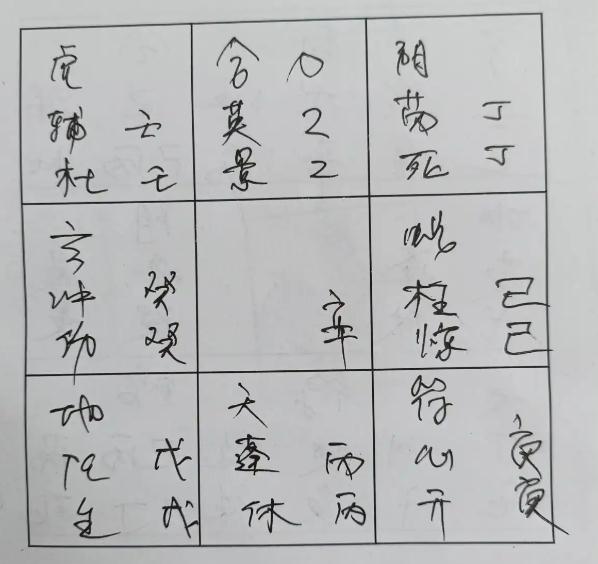 虎
辅 壬
杜 壬
合 〇
英 乙
景 乙
阴
芮 丁
死 丁
玄
冲 癸
伤 癸
辛
蛇
柱 己
惊 己
地
任 戊
生 戊
天
蓬 丙
休 丙
符
心 庚
开 庚